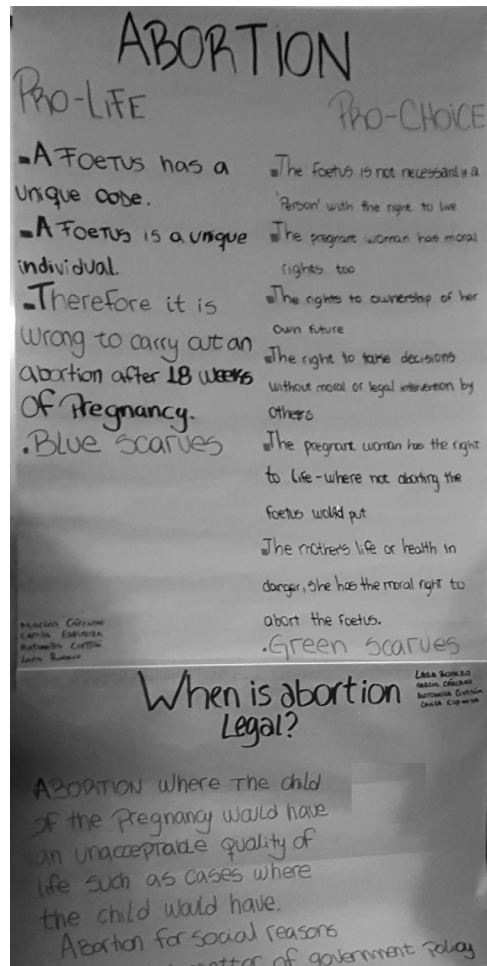 ABORTION
PRO-LIFE
A FOETUS HAS A
UNIQUE CODE.
A FOETUS IS A UNIQUE
individual.
Therefore it is
wrong to carry out an
abortion after 18 weeks
OF Pregnancy.
.Blue scarves
PRO-CHOICE
The foetus is not necessarily a
'Person' with the right to live
The pregnant woman has moral
rights too
The rights to ownership of her
own future
The right to take decisions
without moral or legal intervention by
others
The pregnant woman has the right
to life-where not aborting the
foetus would put
The mother's life or health in
danger, she has the moral right to
abort the foetus.
.Green scarves
When is abortion
Legal?
ABORTION where The child
of the Pregnancy would have
an unacceptable quality of
life such as cases where
the child would have.
Abortion for social reasons
of government Policy